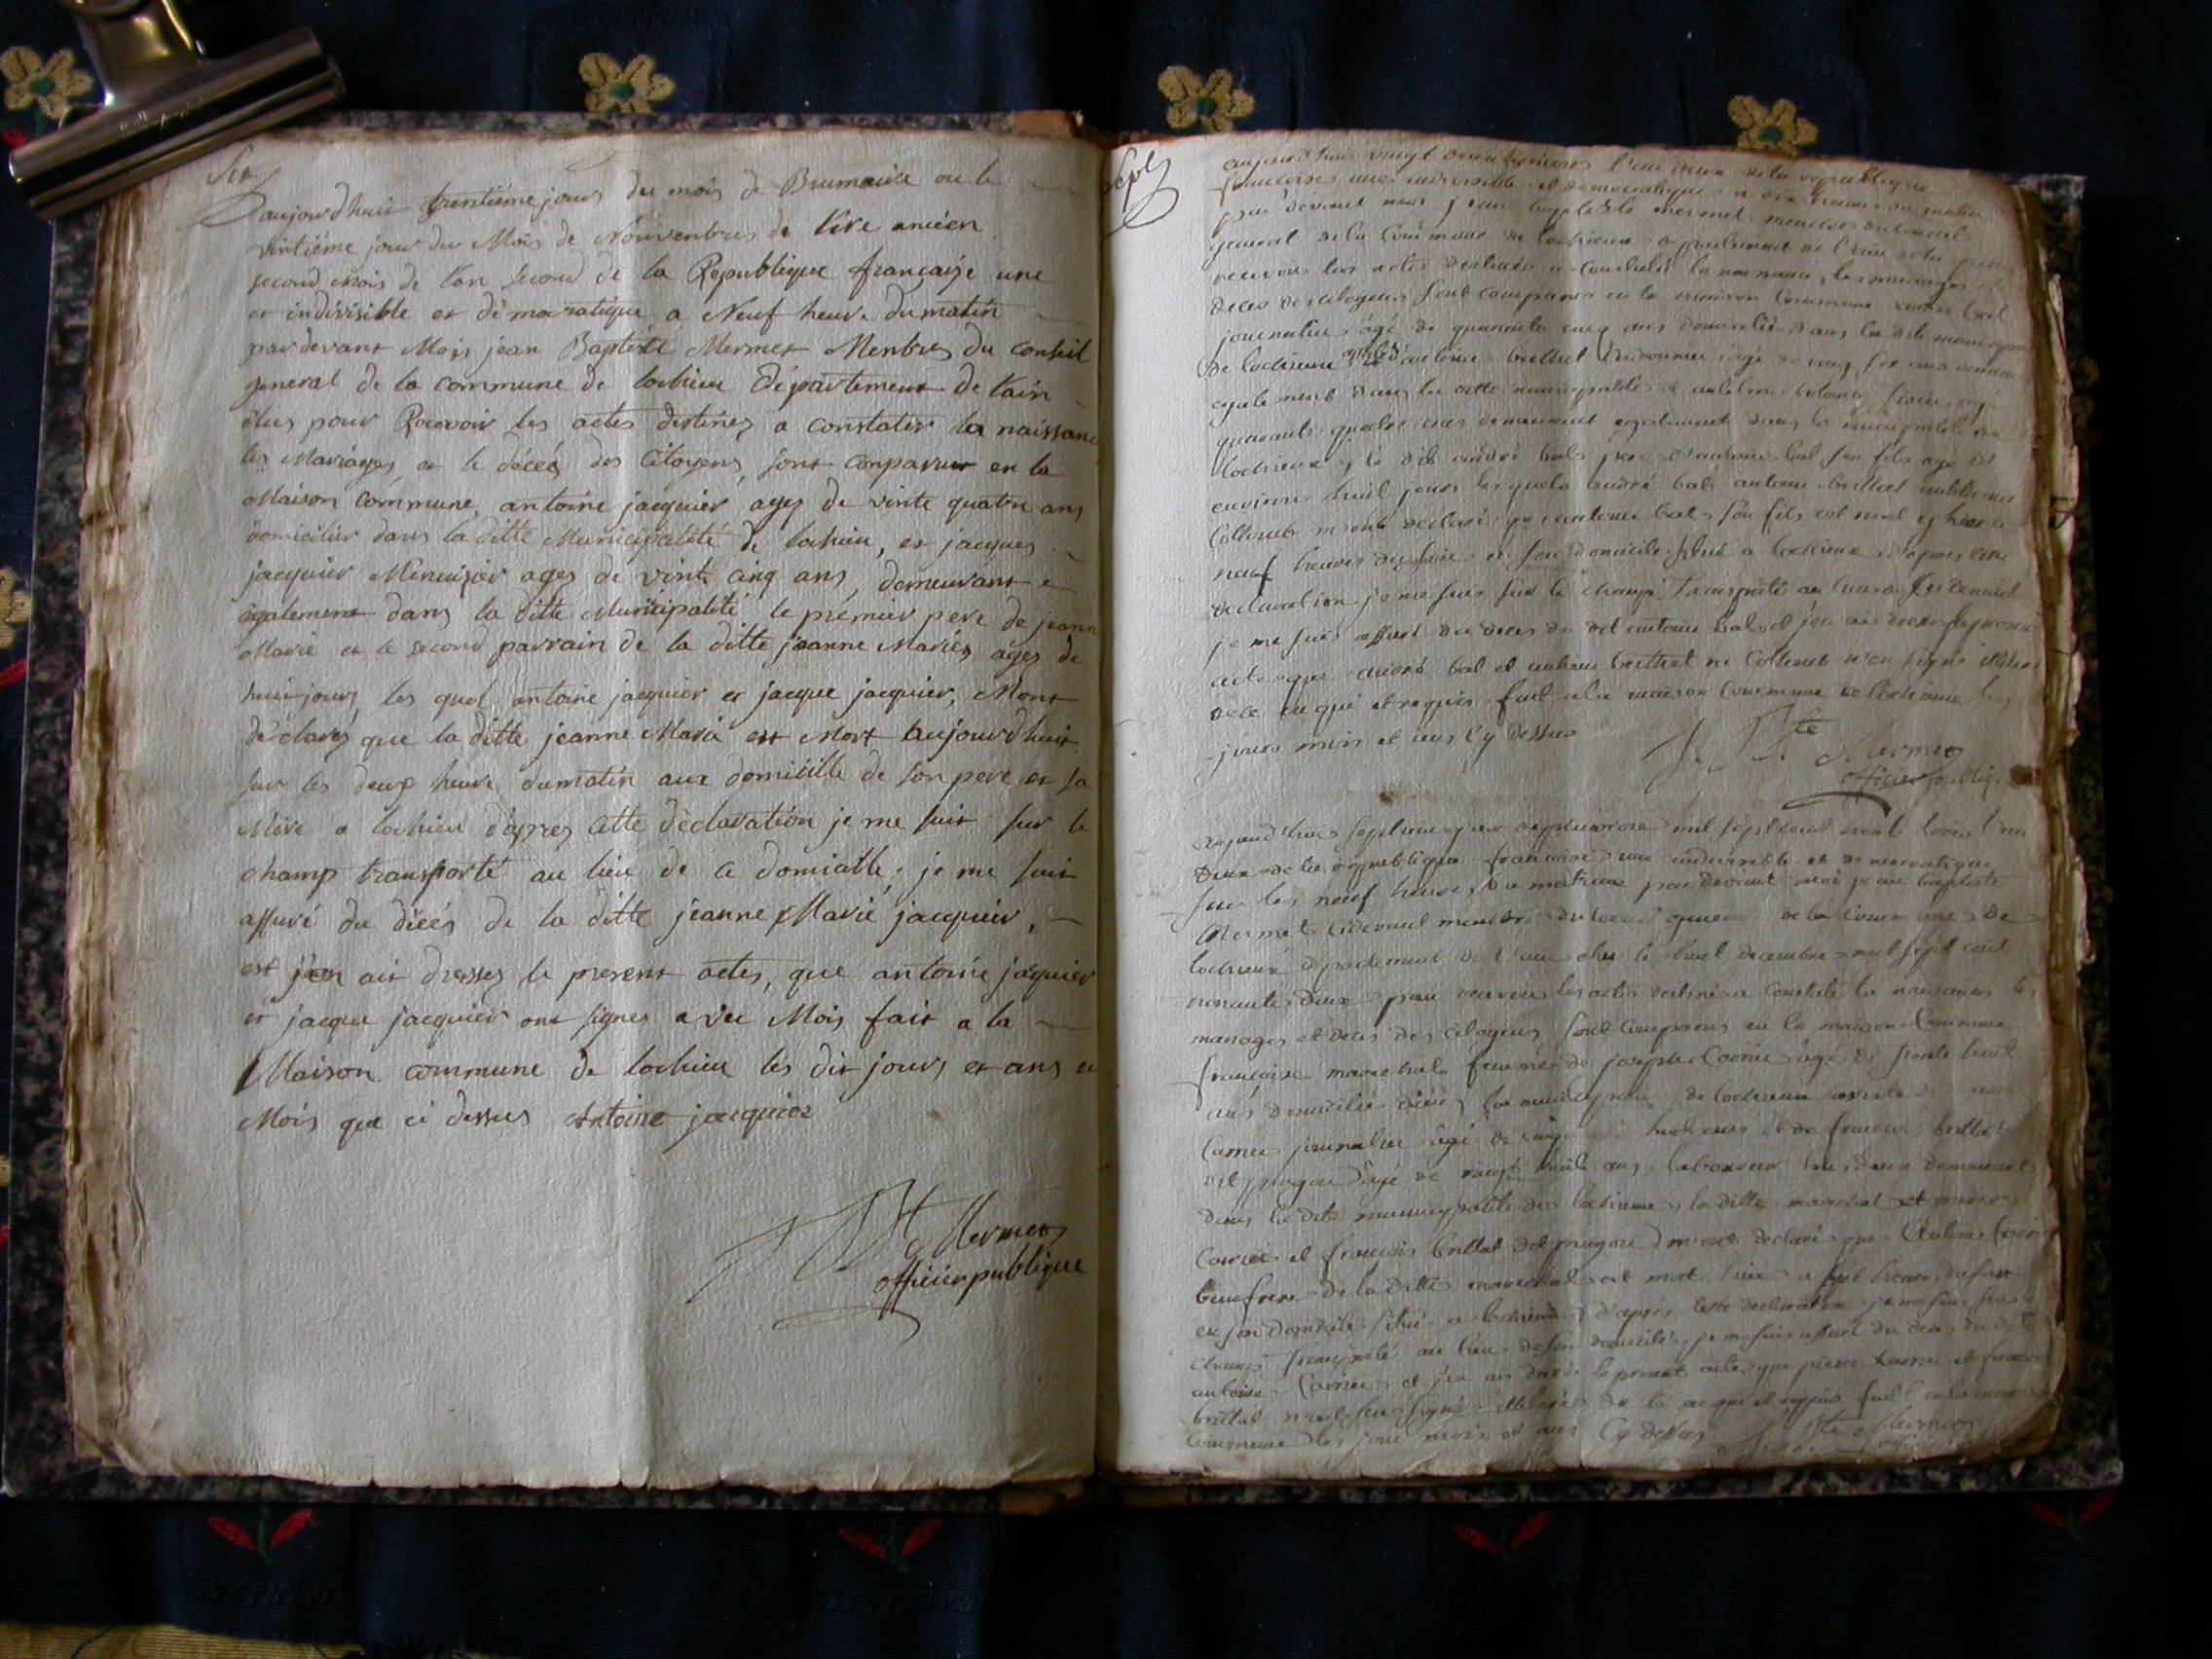 Six
aujourdhuit trentiéme jours du mois de Brumaire ou le
vintiéme jour du Mois de Nouvenbres de l'ère ancien
second mois de l'an second de la Republique française une
et indivisible et démocratique a Neuf heure du matin
pardevant Mois jean Baptiste Mermet Menbres du Conseil
general de la commune de lochieu Département de l'ain
élus pour Recevoir les actes destinez a constater la naissance
les Mariages et le décés des Citoyens, sont conparut en la
Maison commune, antoine jacquier ages de vinte quatre ans
domicilier dans la ditte Municipalité de lochieu, et jacques
jacquier Menuisier ages de vinte cinq ans, demeurant
également dans la ditte Municipalité le prémier pere de jeanne
Marie et le second parrain de la ditte jeanne Maries ages de
huit jours, les quel antoine jacquier et jacque jacquier, Mont
déclarez que la ditte jeanne Marie est Mort aujourdhuit
sur les deux heure dumatin aux domicille de son pere et sa
Mere a lochieu d'aprez cette déclaration je me suit sur le
champ transporté au lieu de ce domicille, je me suit
assuré du décés de la ditte jeanne Marie jacquier,
est j'en ait dressez le present actes, que antoine jacquier
et jacque jacquier ont signes avec Mois fait a la
Maison commune de lochieu les dit jours et ans et
Mois que ci dessus Antoine jacquier
J Bte Mermet
officier publique
Sept
aujourd'hui vingt l'an deux de la republique
francoise une indivisible et democratique a dix heures du matin
par devant moi jean baptiste mermet membre du conseil
general de la Commune de lochieux departement de l'ain elu pour
recevoir les actes destinés a constater la naissance, les mariages et
deces des citoyens sont comparus en la maison Commune andré bal
journalier âgé de quarante cinq ans domicilié dans la dite municipalité
de lochieux antoine brillat âgé de vingt six ans
egalement dans la ditte municipalité et anthelme colomb
quarante quatre ans demeurant egalement dans la municipalité de
lochieux, le dit andré bal pere d'antoine bal son fils agé d
environ huit jours lesquels andré bal antoine brillat anthelme
Collomb m'ont declaré que antoine bal son fils est mort hier a
neuf heures du soir en son domicile situé a lochieux d'apres cette
declaration je me suis sur le champ transporté au lieu de ce domicile
je me suis assuré du deces du dit antoine bal et j'en ai dressé le present
acte que andré bal et antoine brillat ne Collomb n'on signé
de ce enquis et requis fait a la maison Commune de lochieux les
jours mois et ans cy dessus
J. Bte Mermet
officier publiq
aujourd'hui septieme jour mil sept cent nonante trois l'an
deux de la republique francoise une indivisible et democratique
sur les neuf heures du matin par devant moi jean baptiste
Mermet cidevant membre du conseil general de la Commune de
lochieux departement de l'ain elu le huit decembre mil sept cent
nonante deux pour recevoir les actes destinés a constaté la naissance les
mariages et deces des citoyens, sont comparus en la maison Commune
françoise marechal femme de joseph Carrier âgé de trente huit
ans domicilié dans la municipalité de lochieux
Carrier journalier âgé de huit ans et de francois brillat
dit âgé de vingt huit ans laboureur tous deux demeurant
dans la dite municipalité de lochieux, la ditte marechal et
Carrier et francois brillat dit m'ont declaré que
beaufrere de la ditte marechal est mort hier a sept heures du soir
en son domicile situé a lochieux d'apres cette declaration je me suis sur le
champ transporté au lieu de son domicile, je me suis assuré du deces du dit
antoine Carrier et j'en ai dressé le present acte que pierre Carrier et francois
brillat de ce enquis et requis fait en la maison
Commune les jour mois et ans Cy dessus J. Bte Mermet